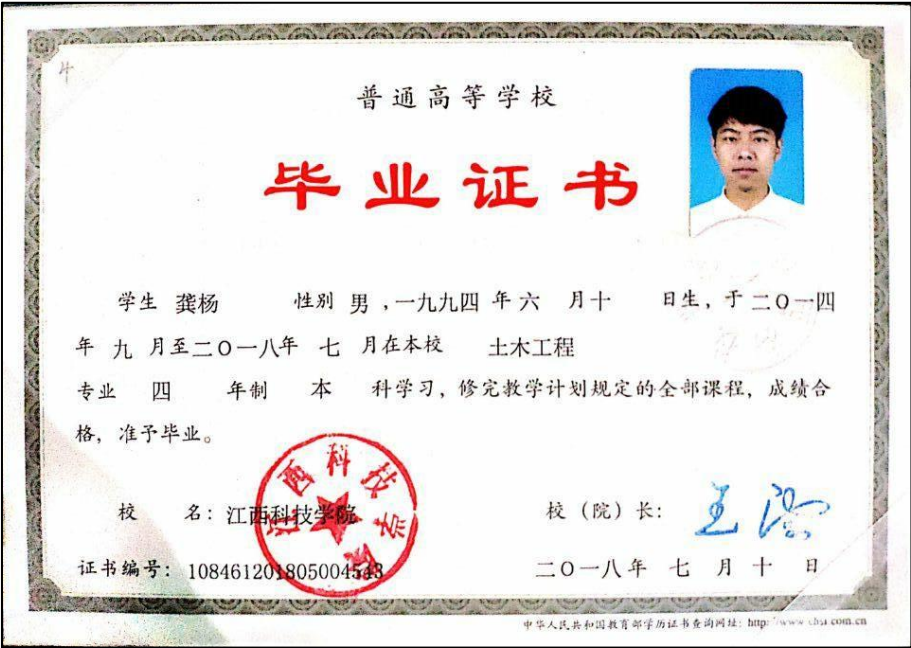 普通高等学校
毕业证书
学生 龚杨 性别 男 ,一九九四 年 六 月十 日生, 于 二〇一四
年 九 月至二〇一八年 七 月在本校 土木工程
专业 四 年制 本 科学习, 修完教学计划规定的全部课程, 成绩合
格, 准予毕业。
江西科技学院
校 名: 江西科技学院 校 (院) 长:
证书编号: 108461201805004543 二〇一八年 七 月 十 日
中华人民共和国教育部学历证书查询网址: http://www.chsi.com.cn